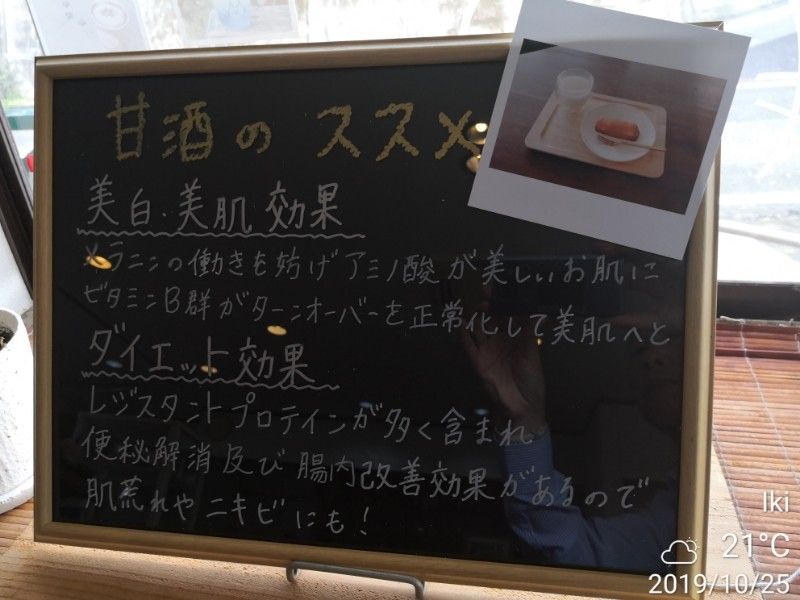 甘酒のススメ
美白・美肌効果
メラニンの働きを妨げアミノ酸が美しいお肌に
ビタミンB群がターンオーバーを正常化して美肌へと
ダイエット効果
レジスタントプロテインが多く含まれ
便秘解消及び腸内改善効果があるので
肌荒れやニキビにも!
Iki
21°C
2019/10/25